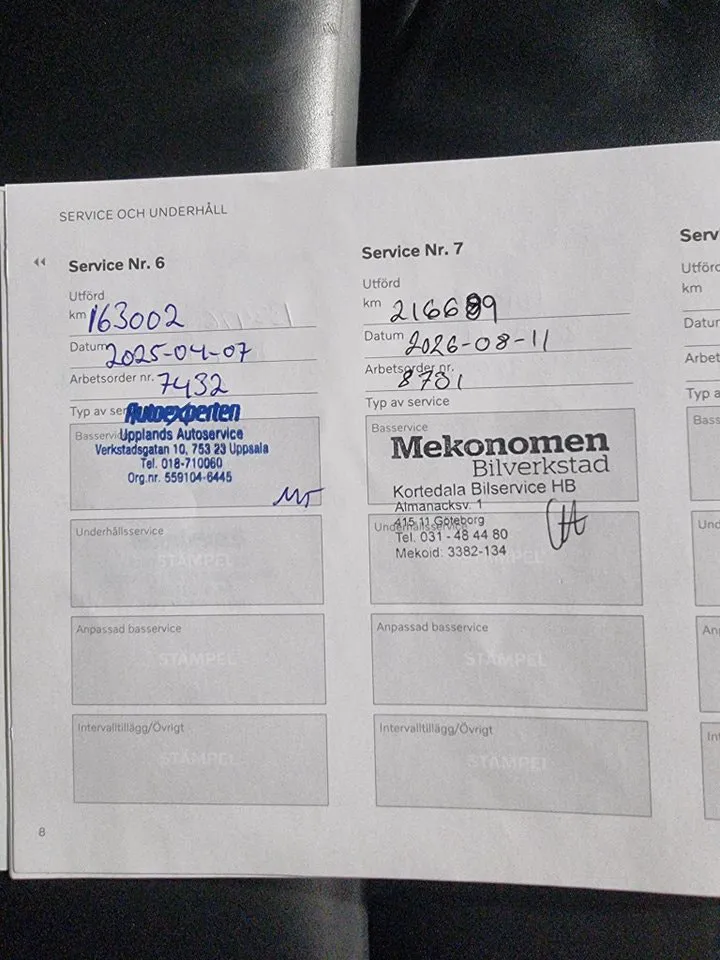 SERVICE OCH UNDERHÅLL
Service Nr. 6
Utförd
km 163002
Datum 2025-04-07
Arbetsorder nr. 7432
Typ av ser
Autoexperten
Basservi
Upplands Autoservice
Verkstadsgatan 10, 753 23 Uppsala
Tel. 018-710060
Org.nr. 559104-6445
Underhållsservice
STÄMPEL
Anpassad basservice
STÄMPEL
Intervalltillägg/Övrigt
STÄMPEL
8
Service Nr. 7
Utförd
km
Datum 2026-08-11
Arbetsorder nr.
8701
Typ av service
Basservice
Mekonomen
Bilverkstad
Kortedala Bilservice HB
Almanacksv. 1
415 11 Göteborg
Underhållsservice
Tel. 031 - 48 44 80
Mekoid: 3382-134
Anpassad basservice
STÄMPEL
Intervalltillägg/Övrigt
STÄMPEL
Serv
Utförd
km
Datum
Arbet
Typ a
Bass
Und
An
In